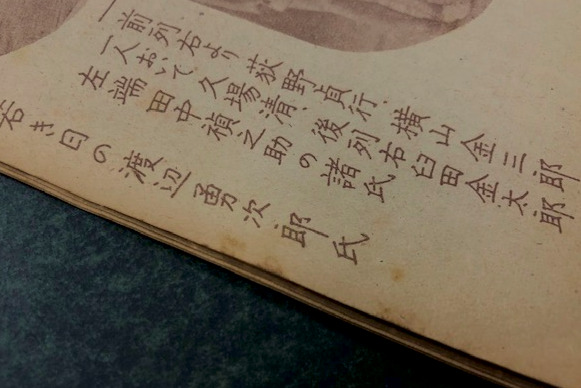 一前列右より 荻野貞行、横山金三郎
一人おいて 久場清、後列右 臼田金太郎
左端 田中禎之助の諸氏
若き日の渡辺勇次郎氏